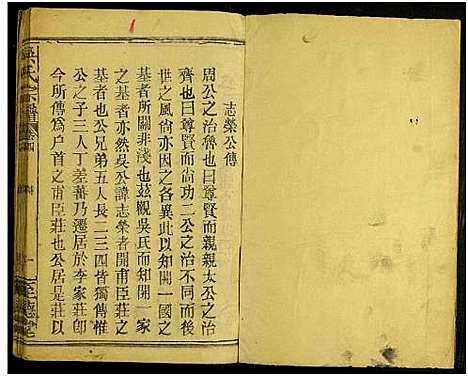 志榮公傳
周公之治魯也曰尊賢而親親太公之治
齊也曰尊賢而尚功二公之治不同而後
世之風尚亦因之各異此以知開一國之
基者所關非淺也茲觀吳氏而知開一家
之基者亦然吳公諱志榮者開甫臣莊之
基者也公兄弟五人長二三四皆獨傳惟
公之子三人丁差蕃乃遷居於李家莊卽
今所傳爲戶首之甫臣莊也公居是莊以
吳氏宗譜
卷四
一
至德堂